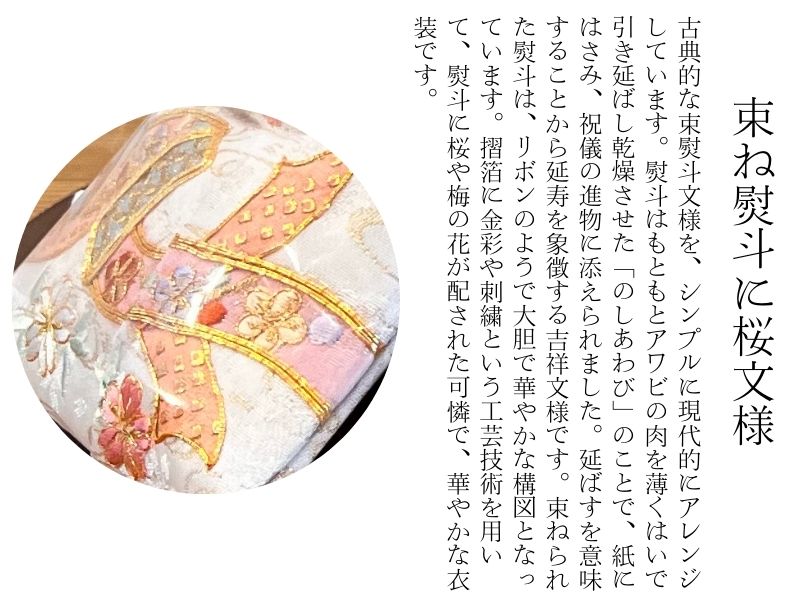 束ね熨斗に桜文様
古典的な束熨斗文様を、シンプルに現代的にアレンジ
しています。熨斗はもともとアワビの肉を薄くはいで
引き延ばし乾燥させた「のしあわび」のことで、紙に
はさみ、祝儀の進物に添えられました。延ばすを意味
することから延寿を象徴する吉祥文様です。束ねられ
た熨斗は、リボンのようで大胆で華やかな構図となっ
ています。摺箔に金彩や刺繍という工芸技術を用い
て、熨斗に桜や梅の花が配された可憐で、華やかな衣
装です。